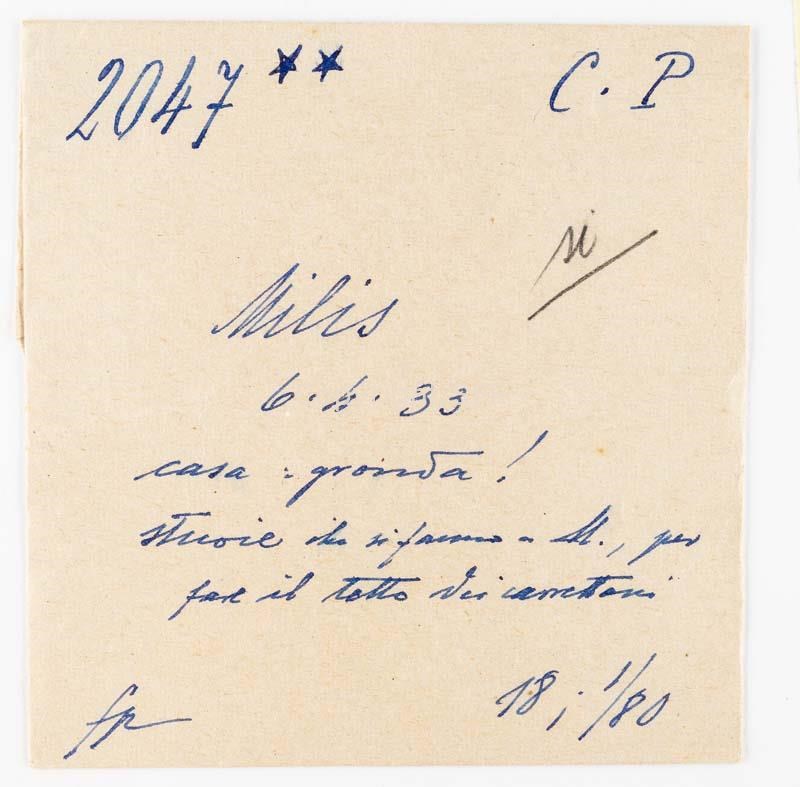 2047 ** C. P
si
Milis
6. 4. 33
casa : gronda!
stuoie che si fanno a M., per
fare il tetto dei carrettoni
fp
18 ; 1/80